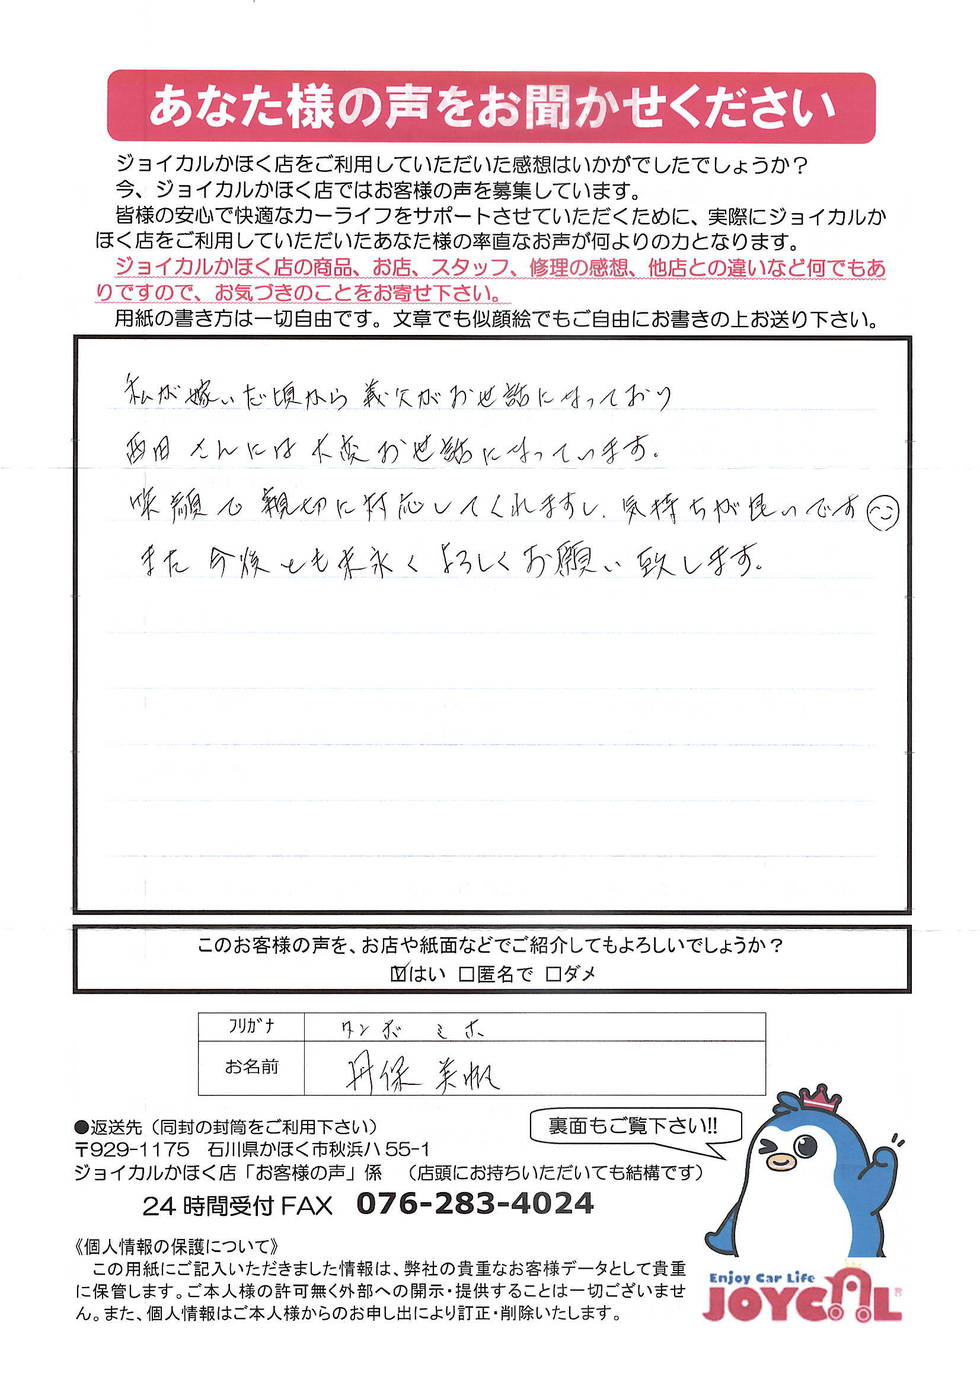 あなた様の声をお聞かせください
ジョイカルかほく店をご利用していただいた感想はいかがでしたでしょうか？
今、ジョイカルかほく店ではお客様の声を募集しています。
皆様の安心で快適なカーライフをサポートさせていただくために、実際にジョイカルか
ほく店をご利用していただいたあなた様の率直なお声が何よりの力となります。
ジョイカルかほく店の商品、お店、スタッフ、修理の感想、他店との違いなど何でもあ
りですので、お気づきのことをお寄せ下さい。
用紙の書き方は一切自由です。文章でも似顔絵でもご自由にお書きの上お送り下さい。
私が嫁いだ頃から義父がお世話になっており
西田さんには大変お世話になっています。
笑顔で親切に対応してくれますし、気持ちが良いです
また今後とも末永くよろしくお願い致します。
このお客様の声を、お店や紙面などでご紹介してもよろしいでしょうか？
☑はい □匿名で □ダメ
ﾌﾘｶﾞﾅ タンボ ミホ
お名前 丹保 美帆
●返送先（同封の封筒をご利用下さい）
裏面もご覧下さい!!
〒929-1175 石川県かほく市秋浜ハ55-1
ジョイカルかほく店「お客様の声」係 （店頭にお持ちいただいても結構です）
24時間受付FAX 076-283-4024
《個人情報の保護について》
この用紙にご記入いただきました情報は、弊社の貴重なお客様データとして貴重
に保管します。ご本人様の許可無く外部への開示・提供することは一切ございませ
ん。また、個人情報はご本人様からのお申し出により訂正・削除いたします。
Enjoy Car Life
JOYCAL®